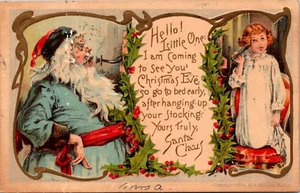 Hello!
Little One:
I am coming
to see you!
Christmas Eve
so go to bed early,
after hanging up
your stocking!
Yours Truly,
Santa
Claus